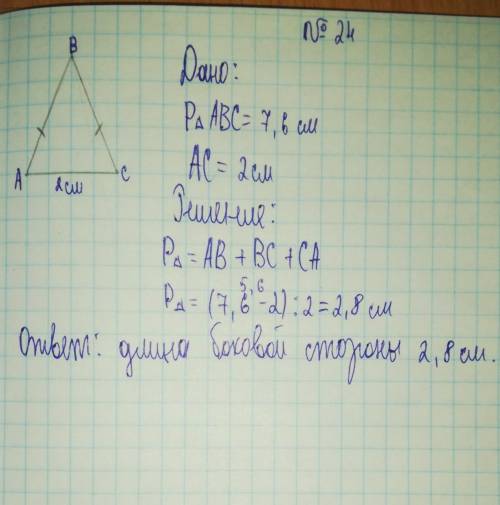 № 24
B
Дано:
P△ ABC = 7,6 см
AC = 2см
A
C
2см
Решение:
P△ = AB + BC + CA
5,6
P△ = (7,6 - 2) : 2 = 2,8 см
Ответ: длина боковой стороны 2,8 см.